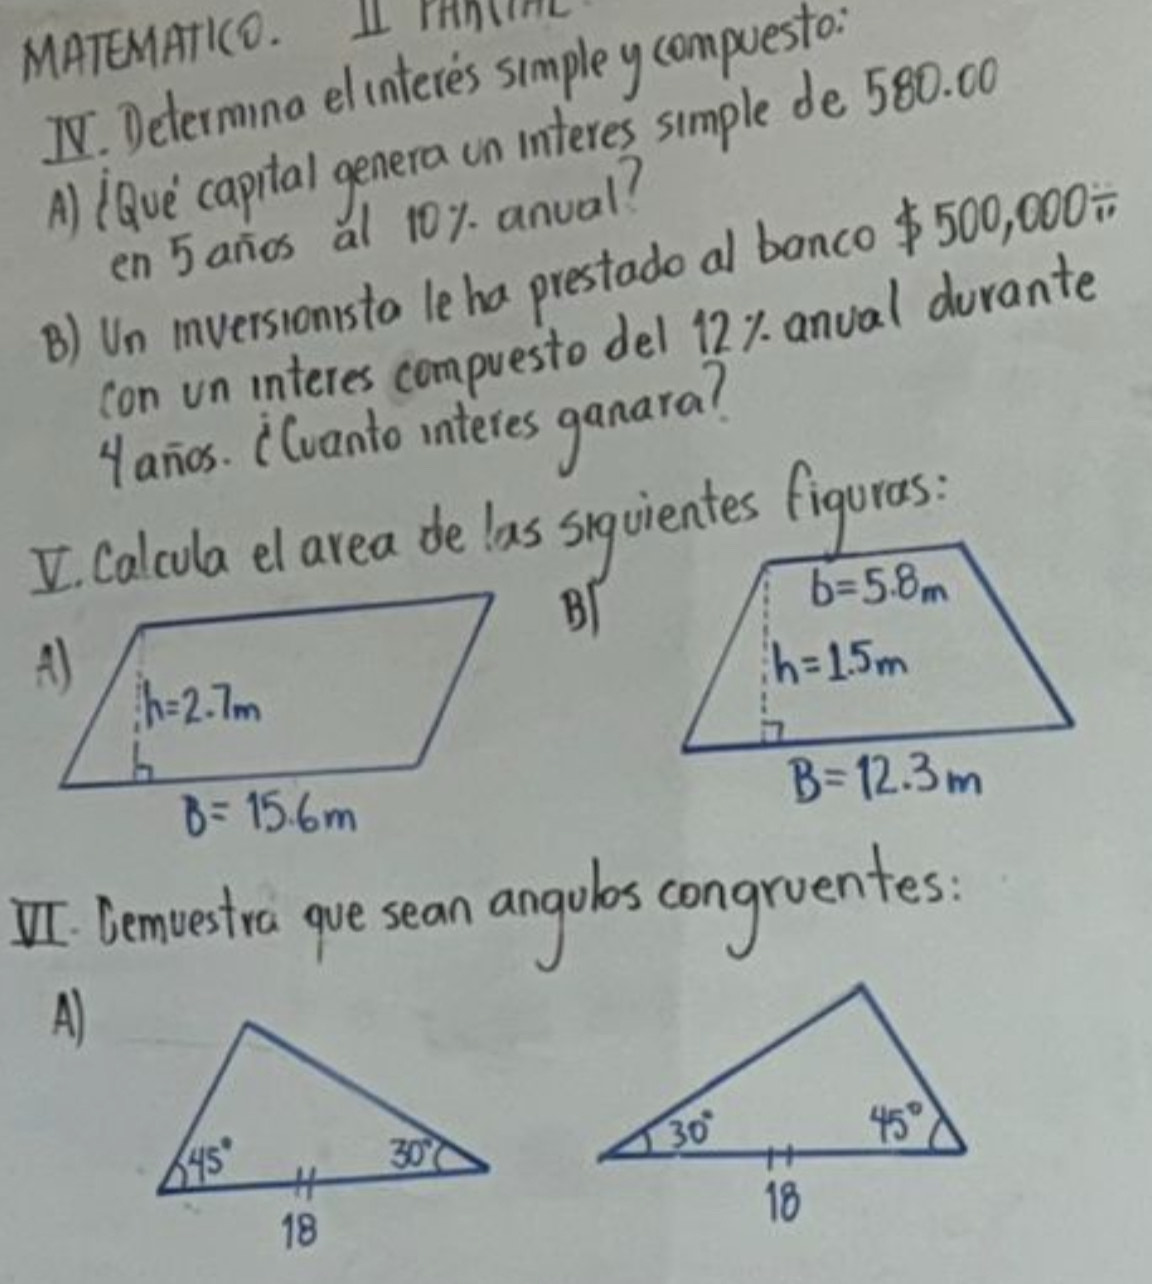 MATEMATICO. II PARCIAL
IV. Determina el interés simple y compuesto:
A) ¿Qué capital genera un interes simple de 580.00
en 5 años al 10% anual?
B) Un inversionista le ha prestado al banco $ 500,000
con un interes compuesto del 12% anual durante
4 años. ¿Cuanto interes ganara?
V. Calcula el area de las siguientes figuras:
A)
h=2.7m
B= 15.6m
B)
b=5.8m
h=1.5m
B=12.3m
VI. Demuestra que sean angulos congruentes:
A)
45° 30°
18
30° 45°
18